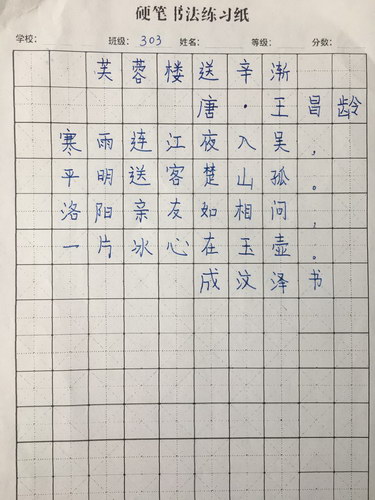 硬笔书法练习纸
学校： 班级：303 姓名： 等级： 分数：
芙蓉楼送辛渐
唐·王昌龄
寒雨连江夜入吴，
平明送客楚山孤。
洛阳亲友如相问，
一片冰心在玉壶。
成汶泽书